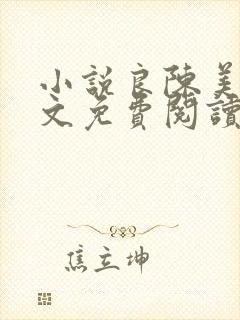 小說良陳美
文免費閱讀
焦立坤